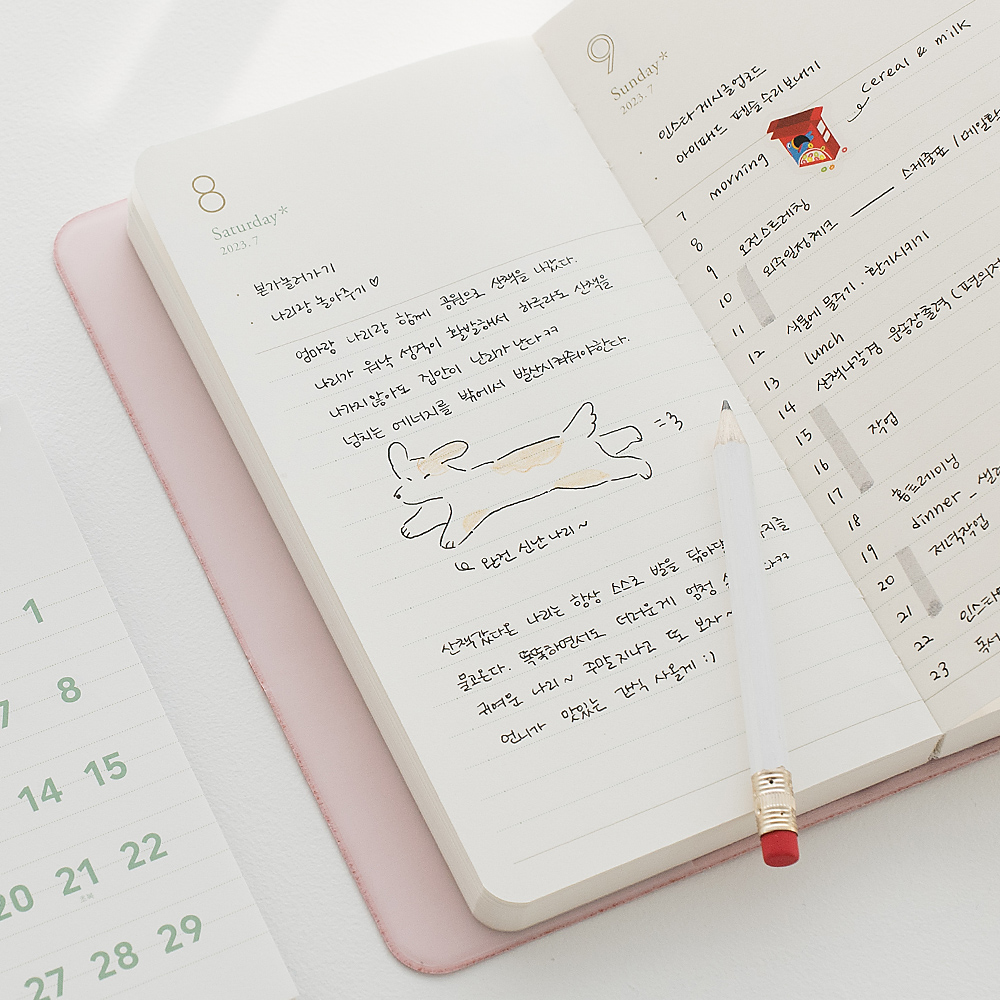 8
Saturday*
2023.7
· 본가놀러가기
· 나리랑 놀아주기♡
엄마랑 나리랑 함께 공원으로 산책을 나갔다.
나리가 워낙 성격이 활발해서 하루라도 산책을
나가지않아도 집안이 난리가 난다ㅋㅋ
넘치는 에너지를 밖에서 발산시켜줘야한다.
=3
완전 신난 나리~
산책갔다온 나리는 항상 스스로 발을 닦아달
물고온다. 똑똑하면서도 더러운게 엄청
귀여운 나리~ 주말지나고 또 보자~
언니가 맛있는 간식 사올게 :)
9
Sunday*
2023.7
· 인스타게시글업로드
· 아이패드 펜슬수리보내기
cereal & milk
7 morning
8 오전스트레칭 — 스케줄표 / 메일확
9 외주일정체크
10
11
12 식물에 물주기. 환기시키기
13 lunch
14 산책나갈겸 운송장출력 (편의점
15
16 작업
17
18 홈트레이닝
19 dinner _ 샐러
20 저녁작업
21
22 인스타
23 독서
1
7 8
14 15
20 21 22
27 28 29